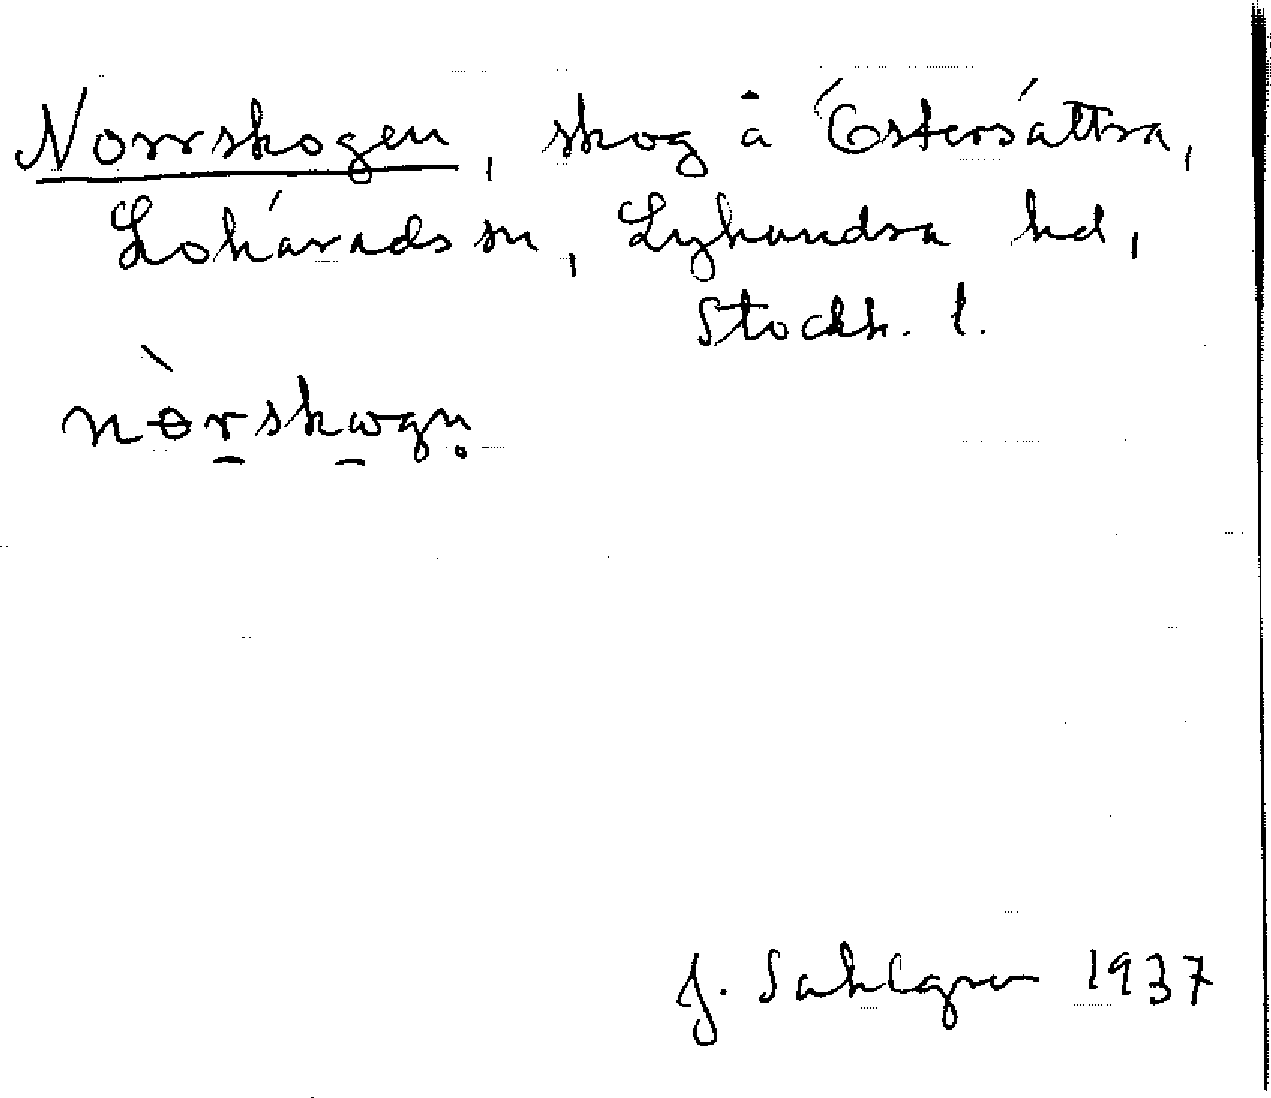 Norrskogen, skog å Östersättra,
Lohärads sn, Lyhundra hd,
Stockh. l.
nòrskogn̥
J. Sahlgren 1937